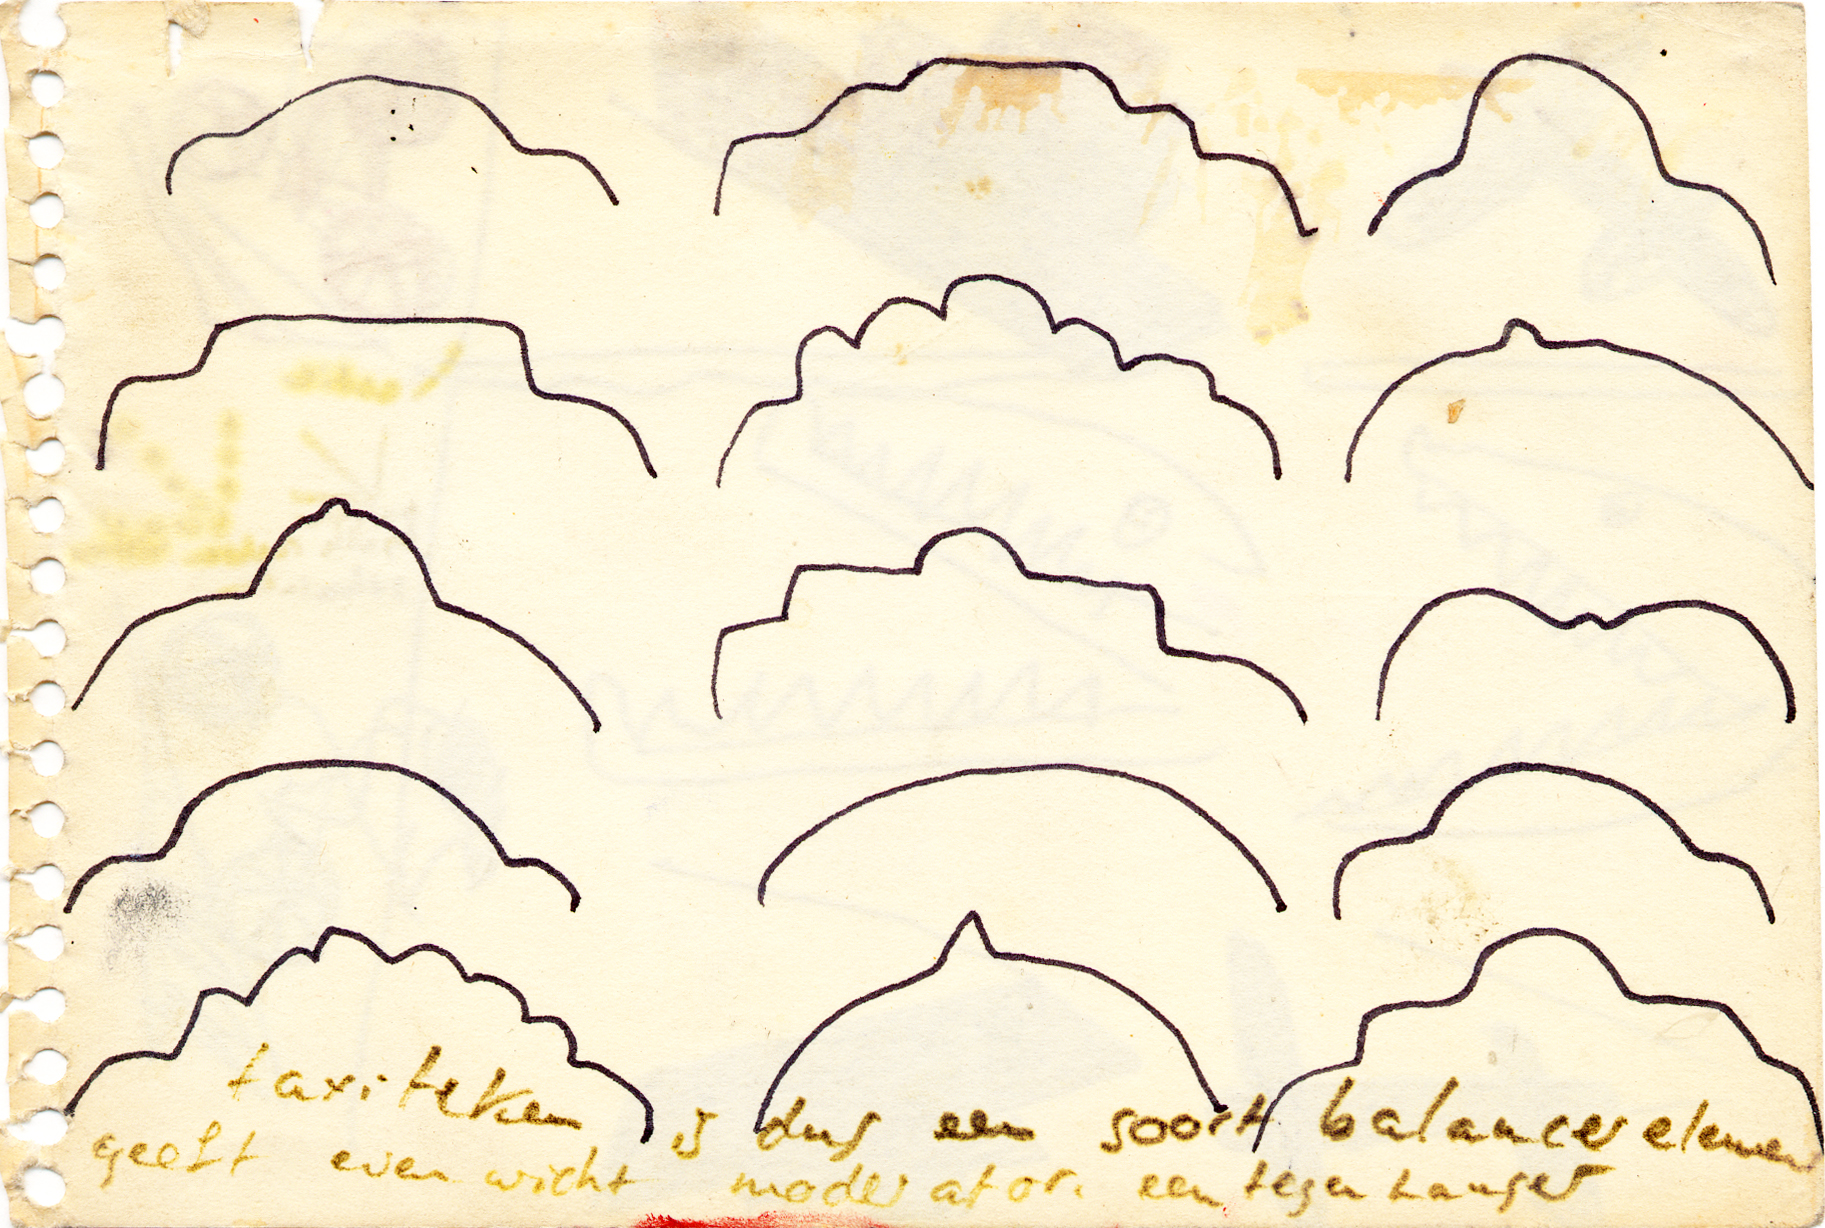 taxiteken is dus een soort balanceerelement
geeft evenwicht moderator. een tegenhanger